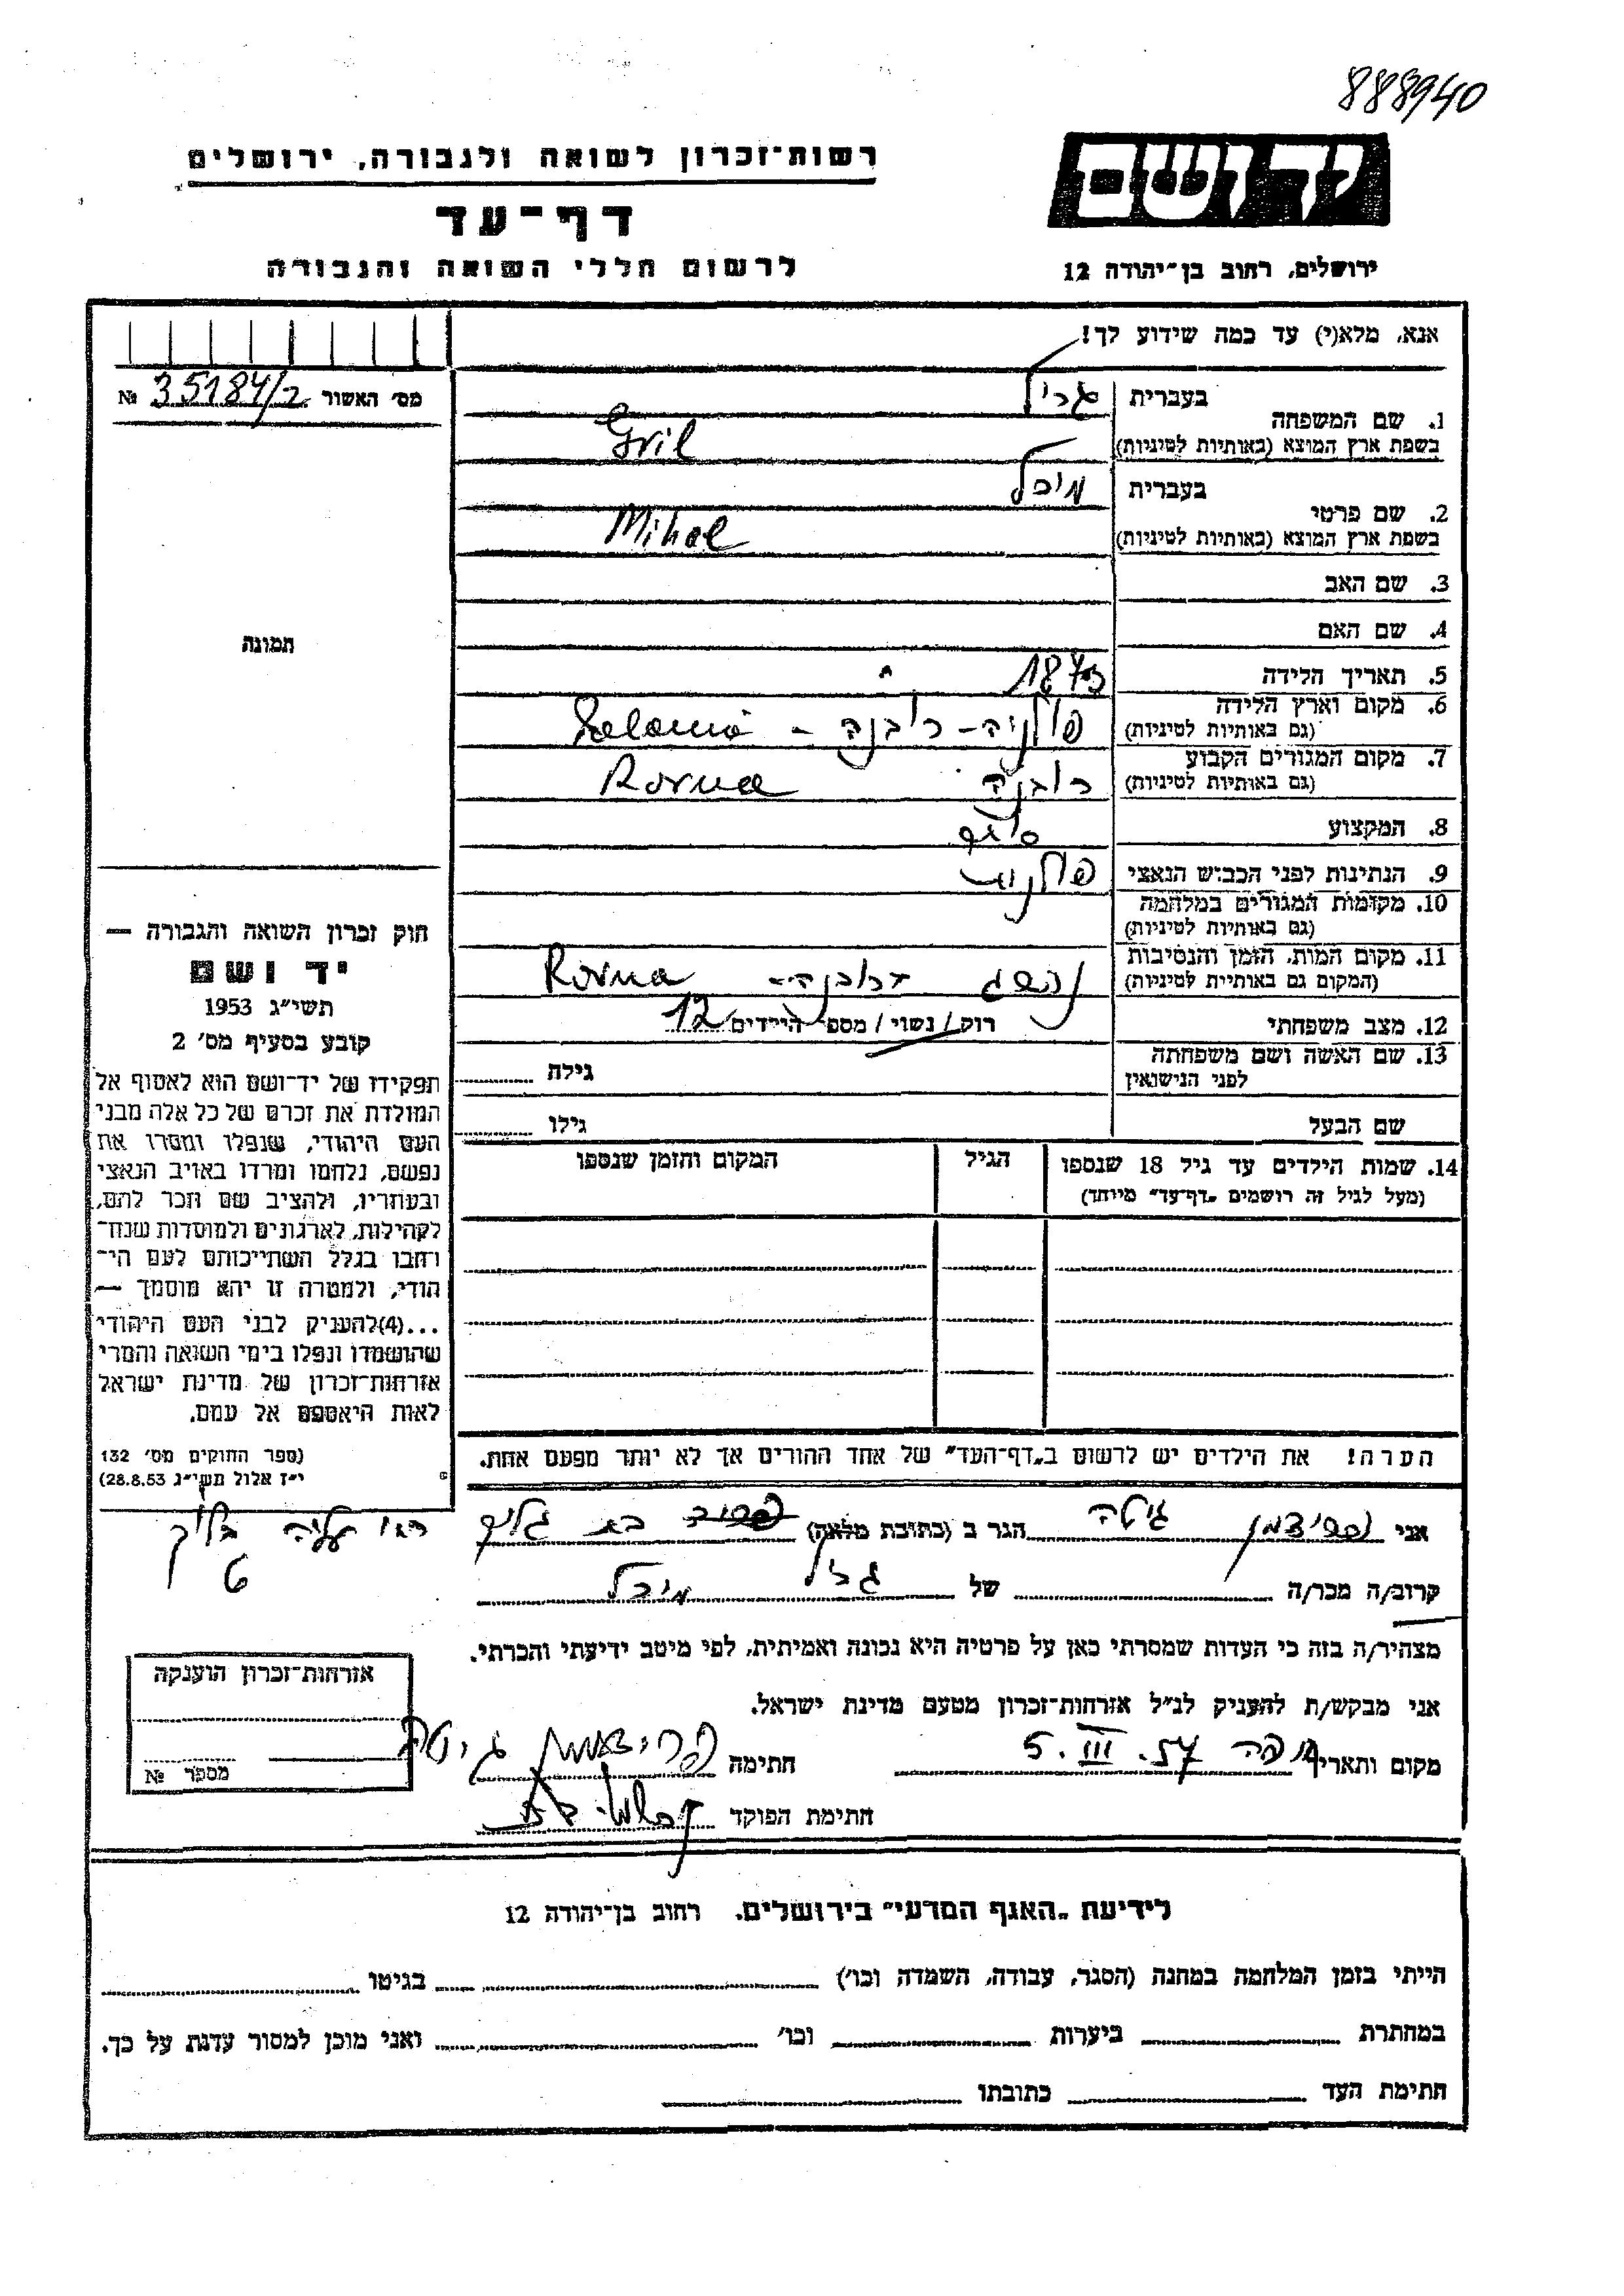 888940
יד ושם
רשות־זכרון לשואה ולגבורה, ירושלים
דף־עד
ירושלים, רחוב בן־יהודה 12
לרשום חללי השואה והגבורה
אנא, מלא(י) עד כמה שידוע לך!
מס׳ האשור 35184/2 №
1. שם המשפחה
בעברית גריל
בשפת ארץ המוצא (באותיות לטיניות) Gril
2. שם פרטי
בעברית מיכל
בשפת ארץ המוצא (באותיות לטיניות) Mihal
3. שם האב
4. שם האם
תמונה
5. תאריך הלידה
6. מקום וארץ הלידה
(גם באותיות לטיניות) פולניה - רובנה -
7. מקום המגורים הקבוע
(גם באותיות לטיניות) רובנה Rovna
8. המקצוע
9. הנתינות לפני הכבוש הנאצי
10. מקומות המגורים במלחמה
(גם באותיות לטיניות)
11. מקום המות, הזמן והנסיבות
(המקום גם באותיית לטיניות) ברובנה - Rovna
12. מצב משפחתי רוק / נשוי / מספר הילדים 12
13. שם האשה ושם משפחתה
לפני הנישואין גילה
שם הבעל גילו
14. שמות הילדים עד גיל 18 שנספו
(מעל לגיל זה רושמים „דף־עד״ מייחד)
הגיל
המקום והזמן שנספו
חוק זכרון השואה והגבורה —
יד ושם
תשי״ג 1953
קובע בסעיף מס׳ 2
תפקידו של יד־ושם הוא לאסוף אל
המולדת את זכרם של כל אלה מבני
העם היהודי, שנפלו ומסרו את
נפשם, נלחמו ומרדו באויב הנאצי
ובעוזריו, ולהציב שם וזכר להם,
לקהילות, לארגונים ולמוסדות שנח־
רחבו בגלל השתייכותם לעם הי־
הודי, ולמטרה זו יהא מוסמך —
...(4)להעניק לבני העם היהודי
שהושמדו ונפלו בימי השואה והמרי
אזרחות־זכרון של מדינת ישראל
לאות היאספם אל עמם.
(ספר החוקים מס׳ 132
י״ז אלול תשי״ג 28.8.53)
הערה! את הילדים יש לרשום ב„דף־העד״ של אחד ההורים אך לא יותר מפעם אחת.
אני גיטה הגר ב (כתובת מלאה) בת גלים
קרוב/ה מכר/ה של גריל מיכל
מצהיר/ה בזה כי העדות שמסרתי כאן על פרטיה היא נכונה ואמיתית, לפי מיטב ידיעתי והכרתי.
אני מבקש/ת להעניק לנ״ל אזרחות־זכרון מטעם מדינת ישראל.
מקום ותאריך חיפה 5. III. 57 חתימה גיטה
חתימת הפוקד
אזרחות־זכרון הוענקה
מספר №
לידיעת „האגף המדעי״ בירושלים. רחוב בן־יהודה 12
הייתי בזמן המלחמה במחנה (הסגר, עבודה, השמדה וכו׳) בגיטו
במחתרת ביערות וכו׳ ואני מוכן למסור עדות על כך.
חתימת העד כתובתו